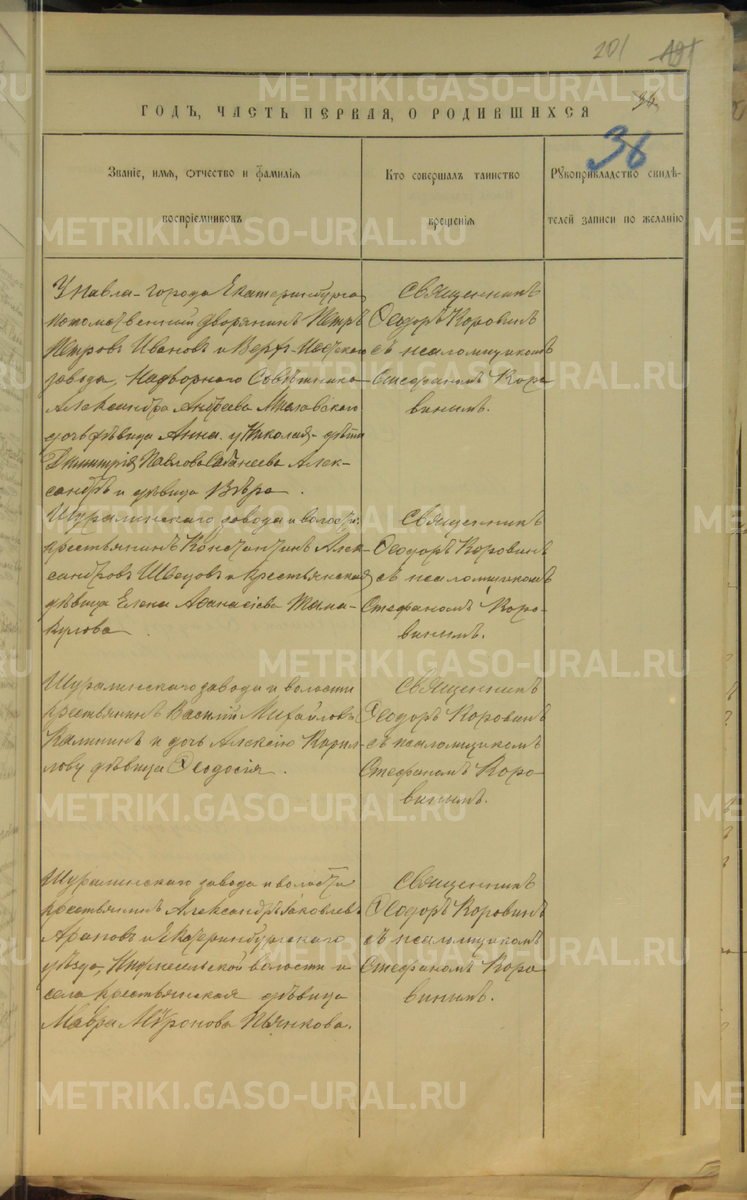 201
36
36
ГОДЪ, ЧАСТЬ ПЕРВАЯ, О РОДИВШИХСЯ
Званіе, имя, отчество и фамилія
воспріемниковъ
Кто совершалъ таинство
крещенія
Рукоприкладство свидѣ-
телей записи по желанію
У Павла - города Екатеринбурга
потомственный дворянинъ Петръ
Петровъ Ивановъ и Верхъ-Исетскаго
завода, Надворнаго Совѣтника
Александра Андреева
дочь дѣвица Анна. у Николая - дѣти
Димитрія Павлова Алек-
сандръ и дѣвица Вѣра.
Священникъ
Ѳеодоръ Коровинъ
съ псаломщикомъ
Стефаномъ Коро-
винымъ.
Шуралинскаго завода и волости
крестьянинъ Константинъ Алек-
сандровъ Швецовъ и крестьянская
дѣвица Елена Аѳанасіева Тама-
кулова
Священникъ
Ѳеодоръ Коровинъ
съ псаломщикомъ
Стефаномъ Коро-
винымъ.
Шуралинскаго завода и волости
крестьянинъ Василій Михайловъ
Калининъ и дочь Алексію Корил-
лову дѣвица Ѳеодосія.
Священникъ
Ѳеодоръ Коровинъ
съ псаломщикомъ
Стефаномъ Коро-
винымъ.
Шуралинскаго завода и волости
крестьянинъ Александръ Яковлевъ
Араповъ и Екатеринбургскаго
уѣзда, волости и
села крестьянская дѣвица
Мавра Миронова Пьянкова.
Священникъ
Ѳеодоръ Коровинъ
съ псаломщикомъ
Стефаномъ Коро-
винымъ.
METRIKI.GASO-URAL.RU